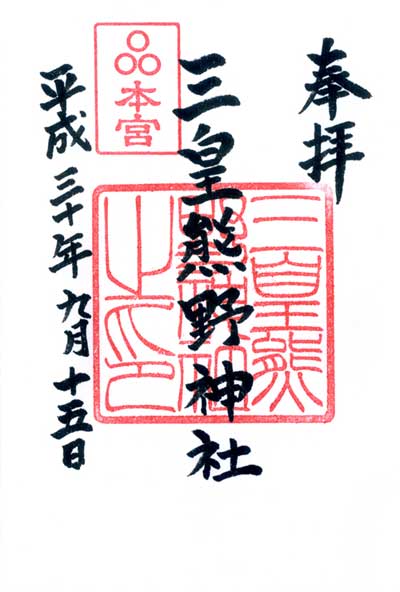 奉拝
三皇熊野神社
本宮
平成三十年九月十五日
三皇熊
野神社
之印